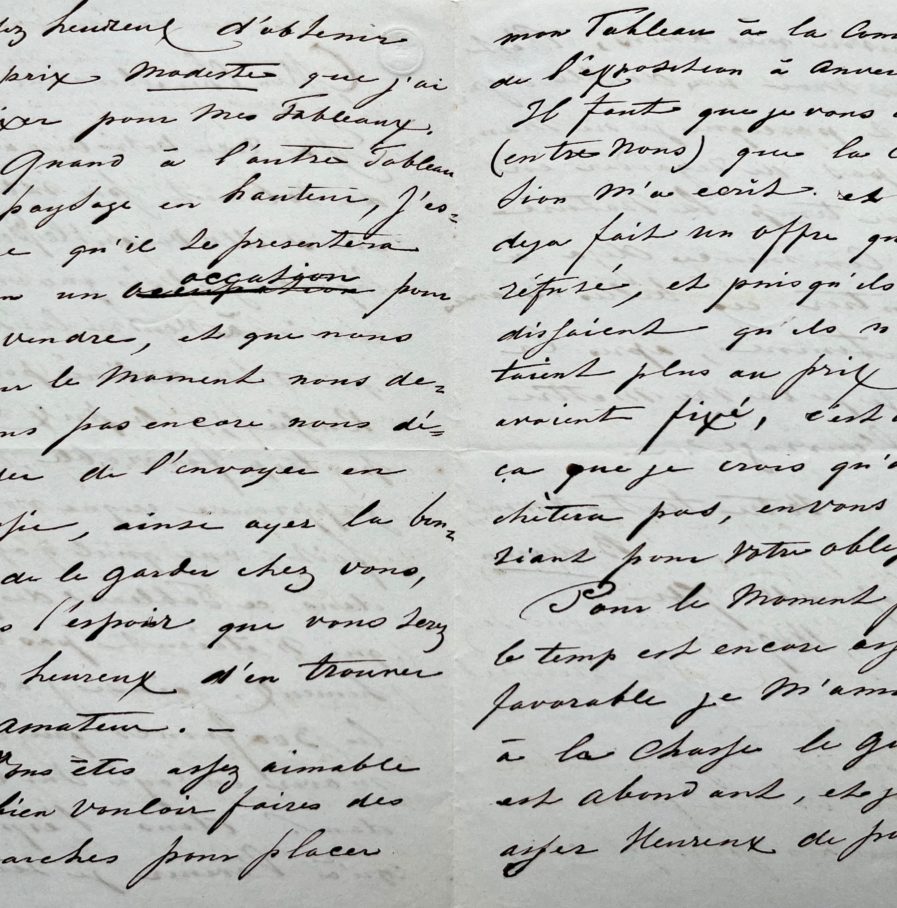 ez heureux d'obtenir
prix modeste que j'ai
ixer pour mes Tableaux.
Quand à l'autre Tableau
paysage en hauteur, j'es=
e qu'il se presentera
n un occupation occassion pour
vendre, et que nous
ur le moment nous de=
ns pas encore nous dé=
der de l'envoyer en
sie, ainsi ayez la bon=
de le garder chez vous,
s l'espoir que vous serez
heureux d'en trouver
amateur. —
Vous êtes assez aimable
bien vouloir faires des
arches pour placer
mon Tableau à la Com
de l'exposition à Anver
Il faut que je vous
(entre Nous) que la C
sion m'a ecrit. et
deja fait un offre qu
réfusé, et puisqu'ils
dissaient qu'ils n
taient plus au prix
avaient fixé, c'est
ça que je crois qu'
chètera pas, en vous
ziant pour votre oblig
Pour le Moment
le temp est encore ass
favorable je M'amu
à la Chasse le gi
est abondant, et j
assez Heureux de po